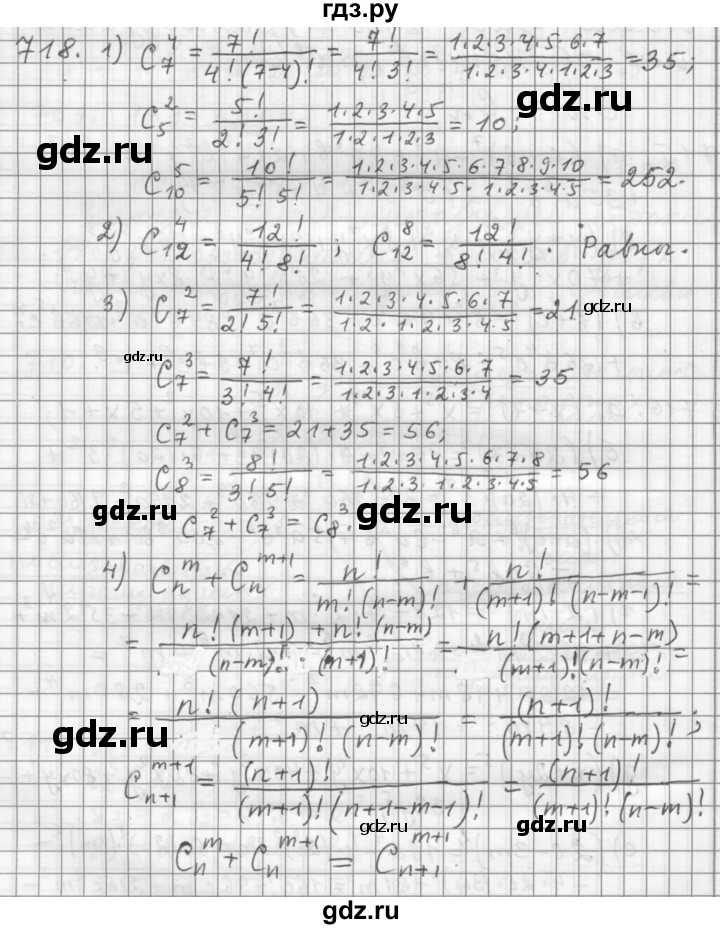 гдз.ру
718. 1) C₇⁴ = 7!/(4!(7-4)!) = 7!/(4! 3!) = (1·2·3·4·5·6·7)/(1·2·3·4·1·2·3) = 35;
gdz.ru
C₅² = 5!/(2! 3!) = (1·2·3·4·5)/(1·2·1·2·3) = 10;
gdz.ru
C₁₀⁵ = 10!/(5! 5!) = (1·2·3·4·5·6·7·8·9·10)/(1·2·3·4·5·1·2·3·4·5) = 252.
2) C₁₂⁴ = 12!/(4! 8!); C₁₂⁸ = 12!/(8! 4!). Равны.
3) C₇² = 7!/(2! 5!) = (1·2·3·4·5·6·7)/(1·2·1·2·3·4·5) = 21
gdz.ru
gdz.ru
C₇³ = 7!/(3! 4!) = (1·2·3·4·5·6·7)/(1·2·3·1·2·3·4) = 35
C₇² + C₇³ = 21 + 35 = 56;
C₈³ = 8!/(3! 5!) = (1·2·3·4·5·6·7·8)/(1·2·3·1·2·3·4·5) = 56
C₇² + C₇³ = C₈³.
gdz.ru
gdz.ru
4) Cₙᵐ + Cₙᵐ⁺¹ = n!/(m!(n-m)!) + n!/((m+1)!(n-m-1)!) =
= (n!(m+1) + n!(n-m))/((n-m)! · (m+1)!) = n!(m+1+n-m)/((m+1)!(n-m)!) =
= n!(n+1)/((m+1)!(n-m)!) = (n+1)!/((m+1)!(n-m)!);
gdz.ru
gdz.ru
Cₙ₊₁ᵐ⁺¹ = (n+1)!/((m+1)!(n+1-m-1)!) = (n+1)!/((m+1)!(n-m)!)
gdz.ru
gdz.ru
Cₙᵐ + Cₙᵐ⁺¹ = Cₙ₊₁ᵐ⁺¹.
gdz.ru